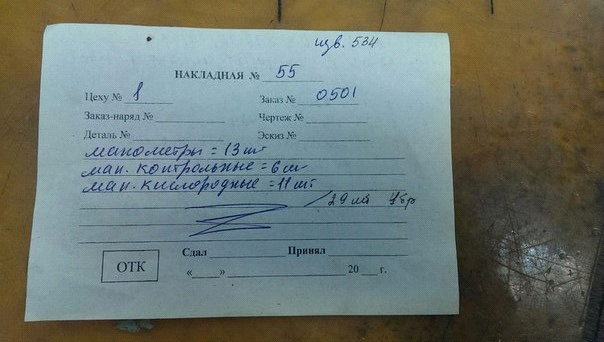 изв. 534
НАКЛАДНАЯ № 55
Цеху № 1 Заказ № 0501
Заказ-наряд № Чертеж №
Деталь № Эскиз №
манометры = 13 шт
ман. контрольные = 6 шт
ман. кислородные = 11 шт
29
Сдал Принял
ОТК
« » 20 г.